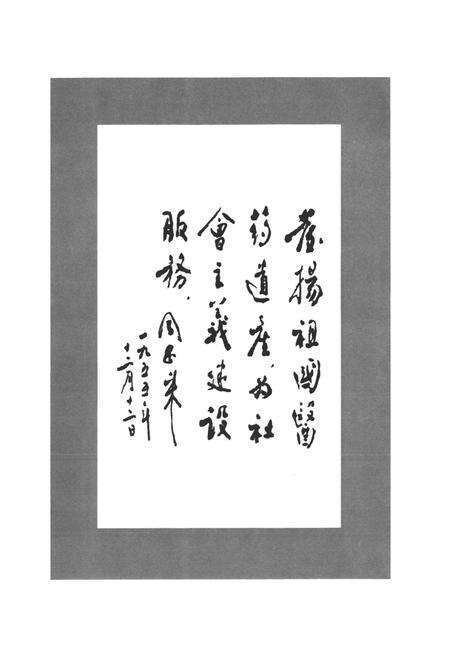 发揚祖國醫
葯遺產,为社
會主義建設
服務.周恩来
一九五五年
十二月十二日